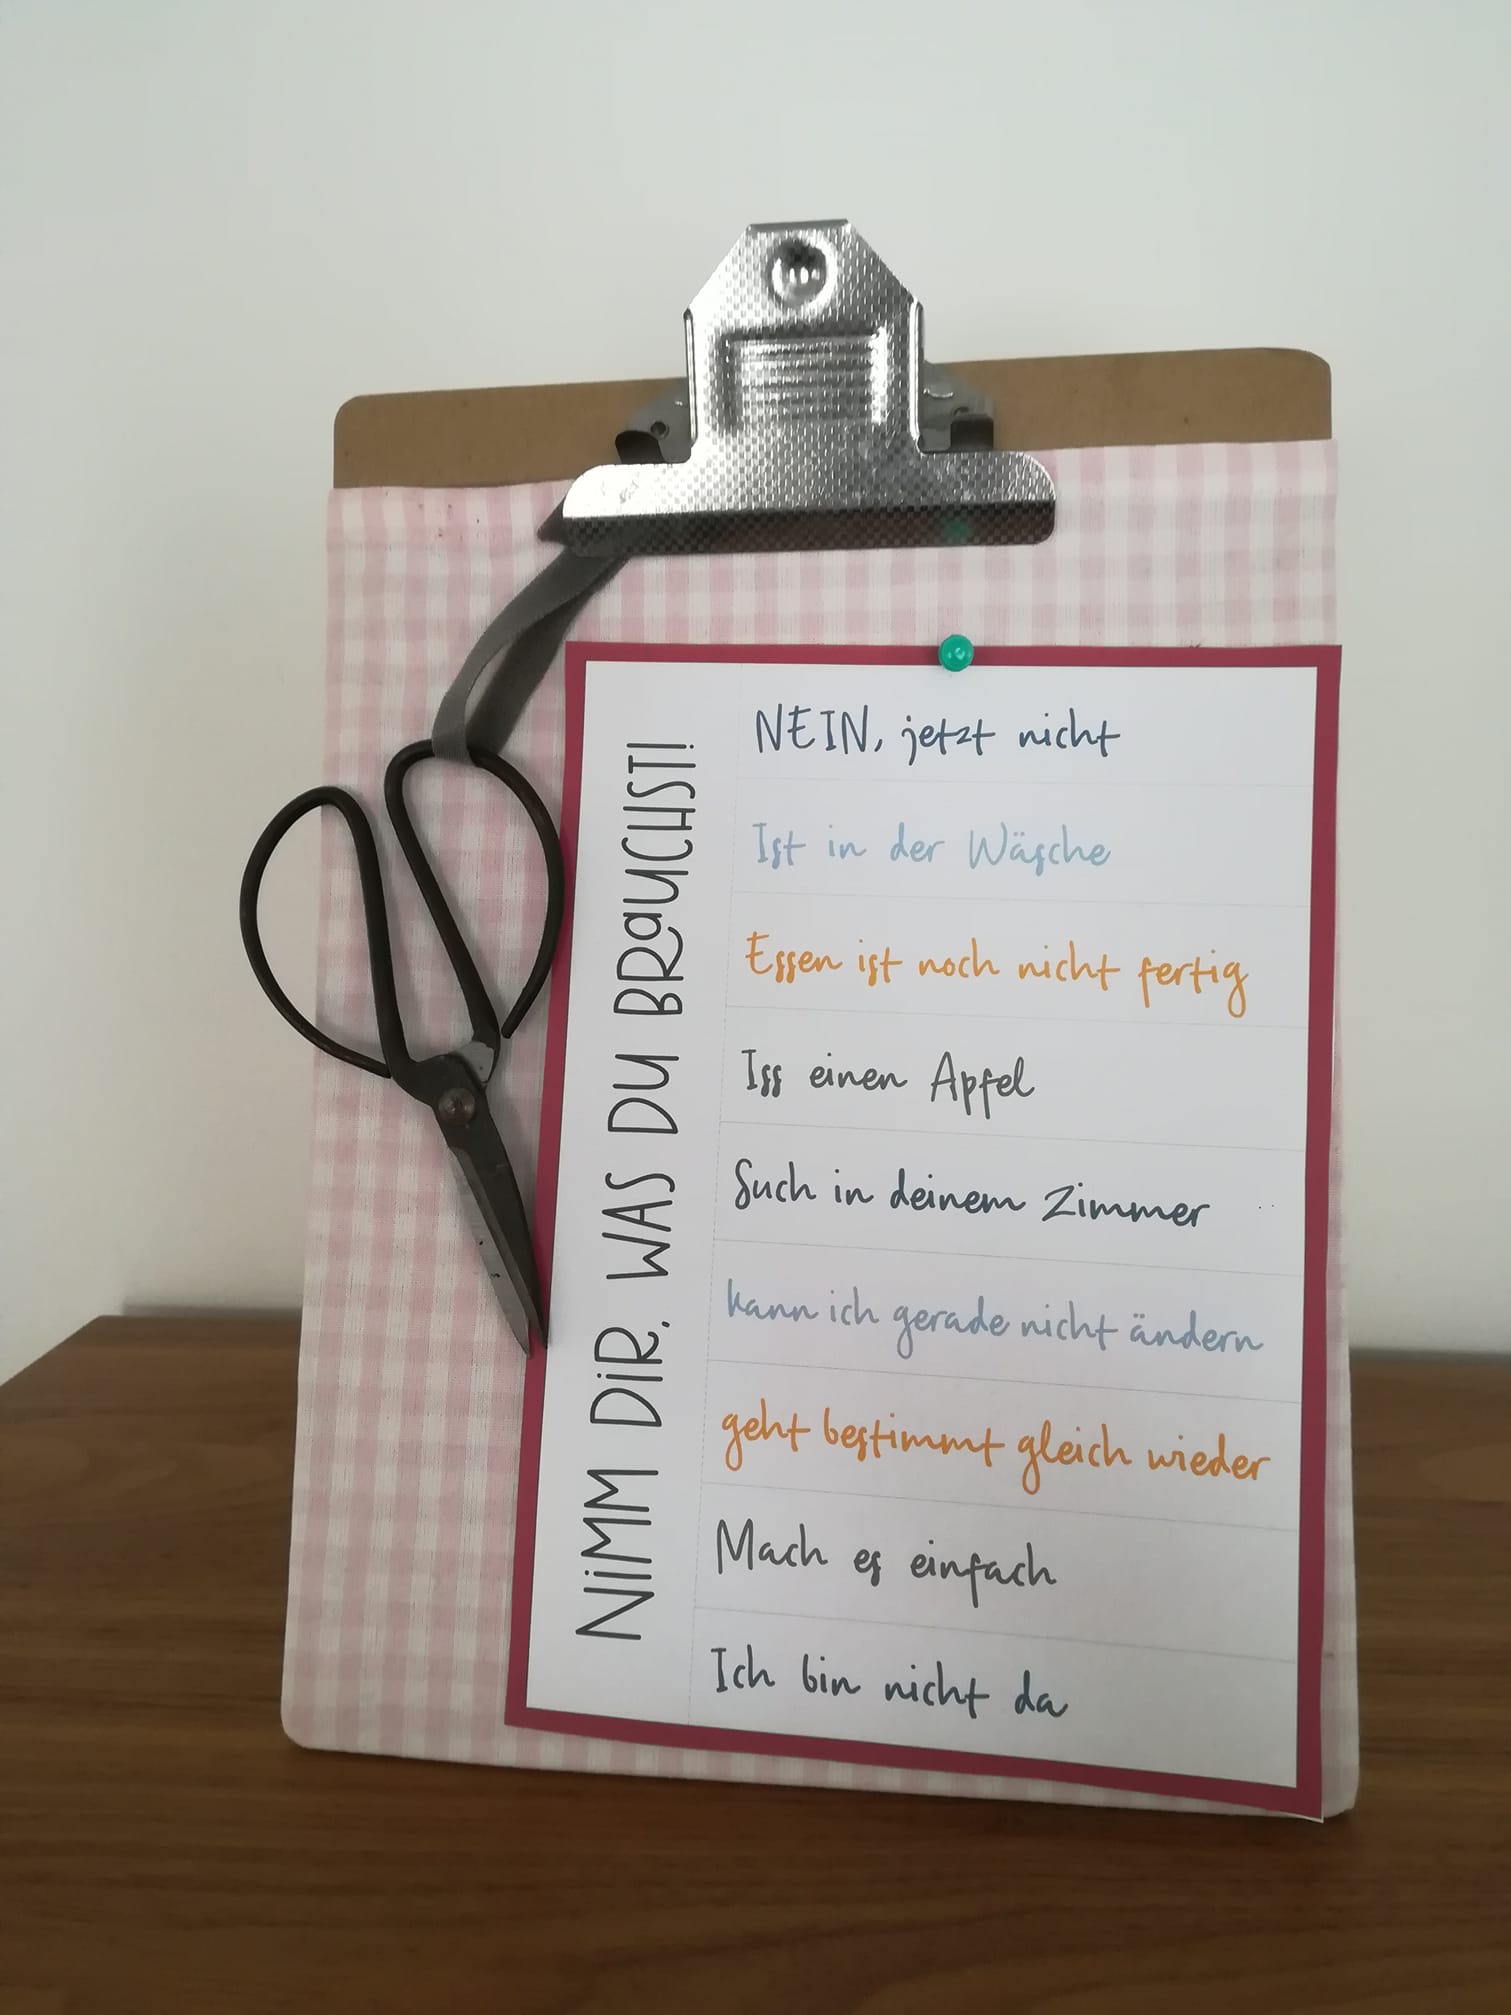 NiMM DiR, WAS DU BRaUCHST!
NEIN, jetzt nicht
Ist in der Wäsche
Essen ist noch nicht fertig
Iss einen Apfel
Such in deinem Zimmer
kann ich gerade nicht ändern
geht bestimmt gleich wieder
Mach es einfach
Ich bin nicht da